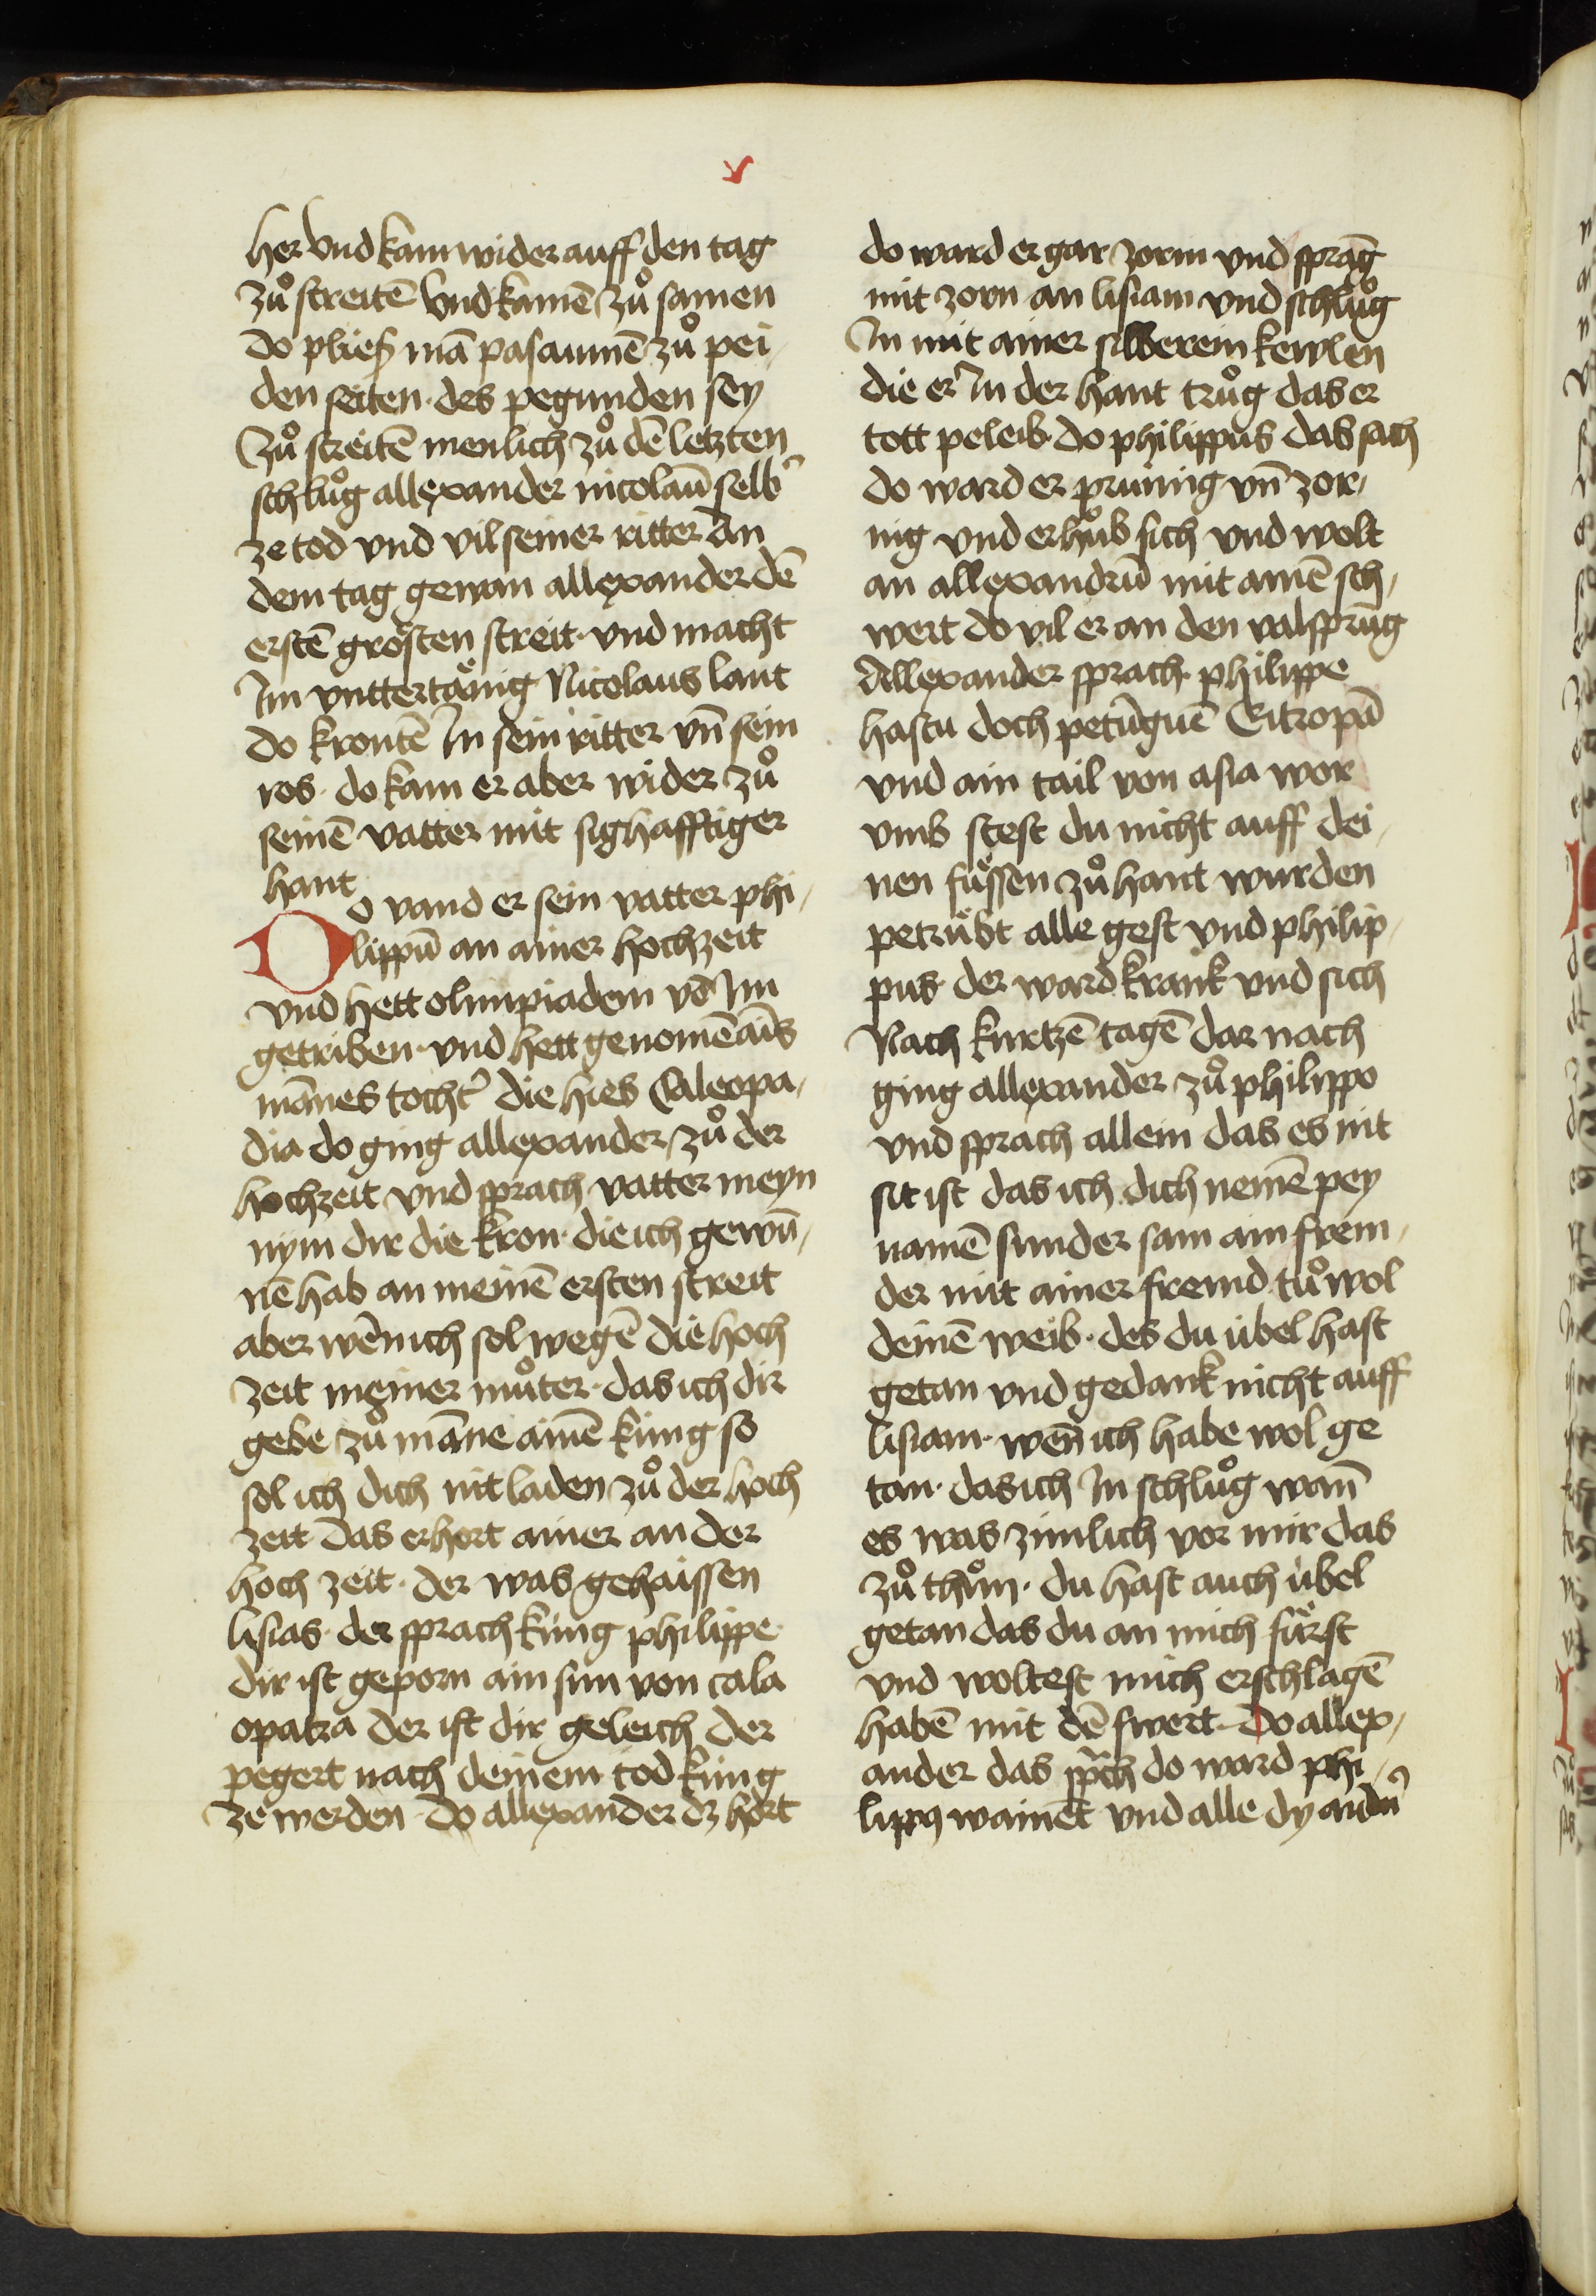 v
her vnd kam wider auff den tag
zuͦ streitē vnd kamē zuͦ samen
do plieſʒ mā pasaumē zuͦ pei,
den seiten · des pegunden sey
zuͦ streitē menlich zuͦ dē letzten
schluͦg allexander nicolaū selb᾽
ze tod vnd vil seiner ritter An
dem tag gewan allexander dē
erstē groͤsten streit · vnd macht
Im vnttertaͤnig Nicolaus lant
do krontē In sein ritter vn̄ sein
ros · do kam er aber wider zuͦ
seinē vatter mit sighafftiger
hant
Do vand er sein vatter phi,
lippū an ainer hochzeit
vnd hett olimpiadem vō Im
getriben · vnd hett genomē ains
mānes tocht᾽ die hies Caleopa,
dia do ging allexander zuͦ der
hochzeit vnd sprach vatter meyn
nym dir die kron · die ich gewū,
nē hab an meinē ersten streit
aber wēn ich sol wegē die hoch
zeit meiner muͦter · das ich dir
gebe zuͦ māne ainē kúng so
sol ich dich nit laden zuͦ der hoch
zeit das erhort ainer an der
hoch zeit · der was gehaissen
lisias · der sprach kúng philippe ·
dir ist geporn ain sun von cala
opatra der ist dir geleich der
pegert nach deinem tod kúng
ze werden · do allexander dz hort
do ward er gar zornn vnd sprāg
mit zorn an lisiam vnd schluͦg
In mit ainer silberein kewlen
die er In der hant truͦg das er
tott peleib · do philippus das sach
do ward er prúnig vn̄ zor,
nig vnd erhuͦb sich vnd wolt
an allexandrū mit ainē sch,
wert do vil er an den valsprūg
Allexander sprach · philippe
hastu doch petūguē Eitropā
vnd ain tail von asia wor
vmb stest du nicht auff dei,
nen fuͤssen zuͦ hant wurden
petruͤbt alle gest vnd philip,
pus · der ward krank vnd sich
Nach kurtzē tagē dar nach
ging allexander zuͦ philippo
vnd sprach allein das es nit
sit ist das ich dich nemē pey
namē sunder sam ain frem,
der mit ainer fremd tuͦ wol
deinē weib · des du úbel hast
getan vnd gedank nicht auff
lisiam · wēn ich habe wol ge
tan · das ich In schluͦg wan̄
es was zimlich vor mir das
zuͦ thuͦn · du hast auch úbel
getan das du an mich fuͤrst
vnd woltest mich erschlagē
habē mit dē swert · Do allex,
ander das sp̄ch do ward phi,
lippꝰ wainēt vnd alle dy andn᾽